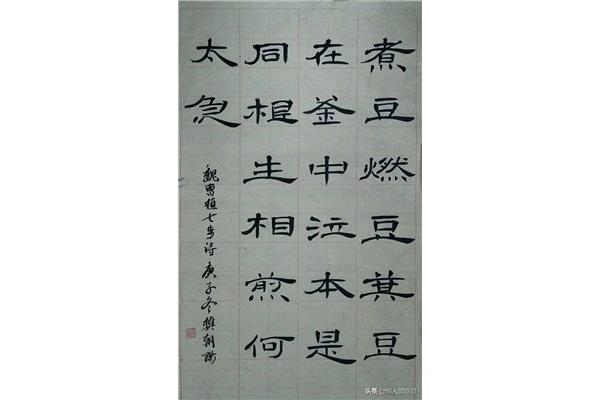 煮豆燃豆萁豆
在釜中泣本是
同根生相煎何
太急
魏曹植七步诗庚子冬樊朝陽
头条